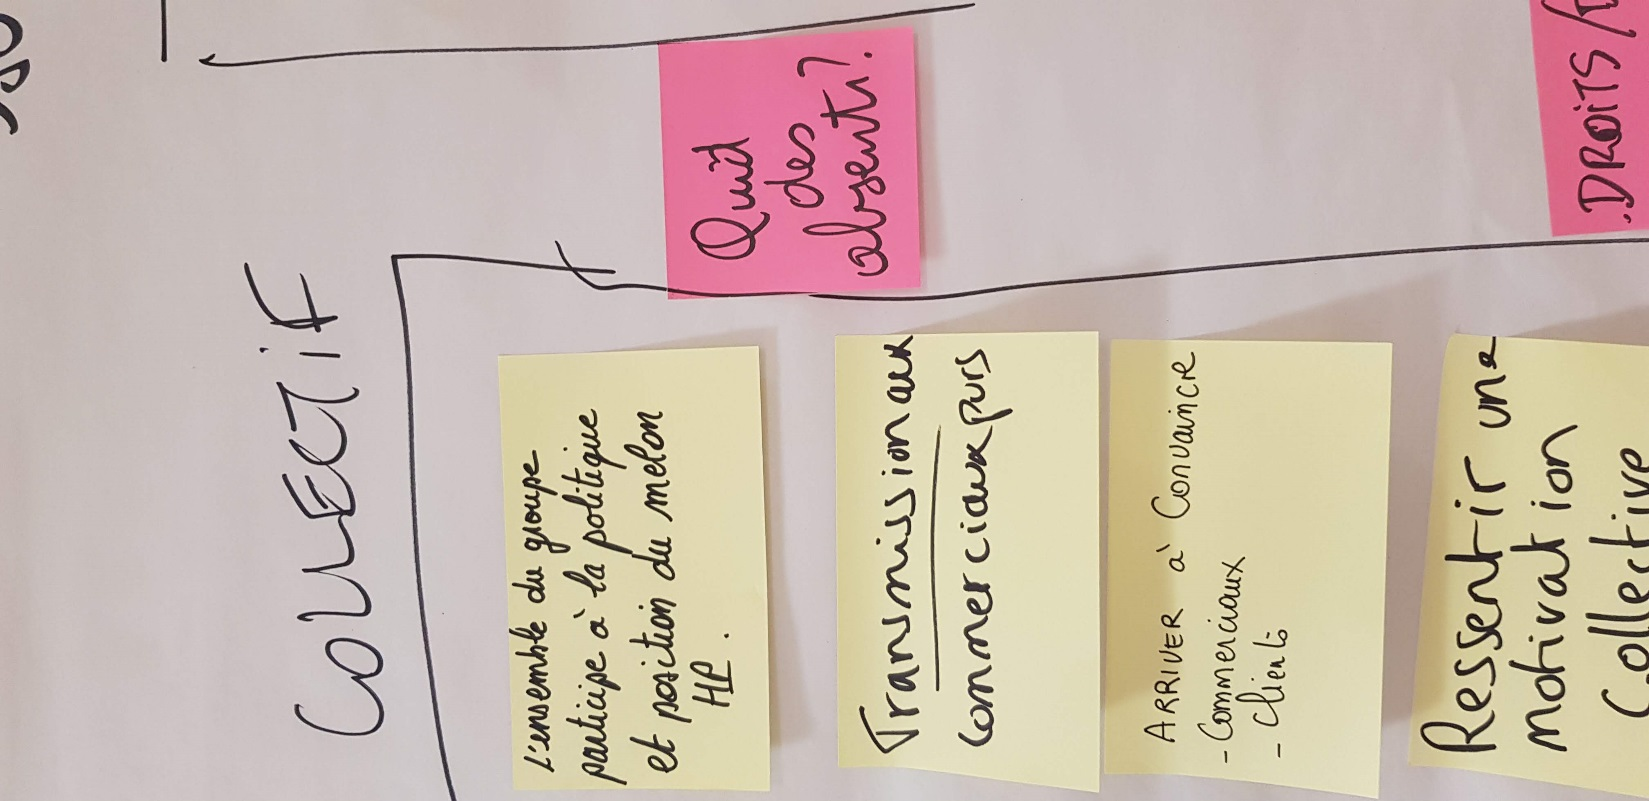 COLLECTIF
L'ensemble du groupe
participe à la politique
et position du melon
HP.
Transmission aux
commerciaux purs
ARRIVER à Convaincre
- Commerciaux
- Clients
Ressentir une
motivation
Collective
Quid
des
absents?
.DROITS/